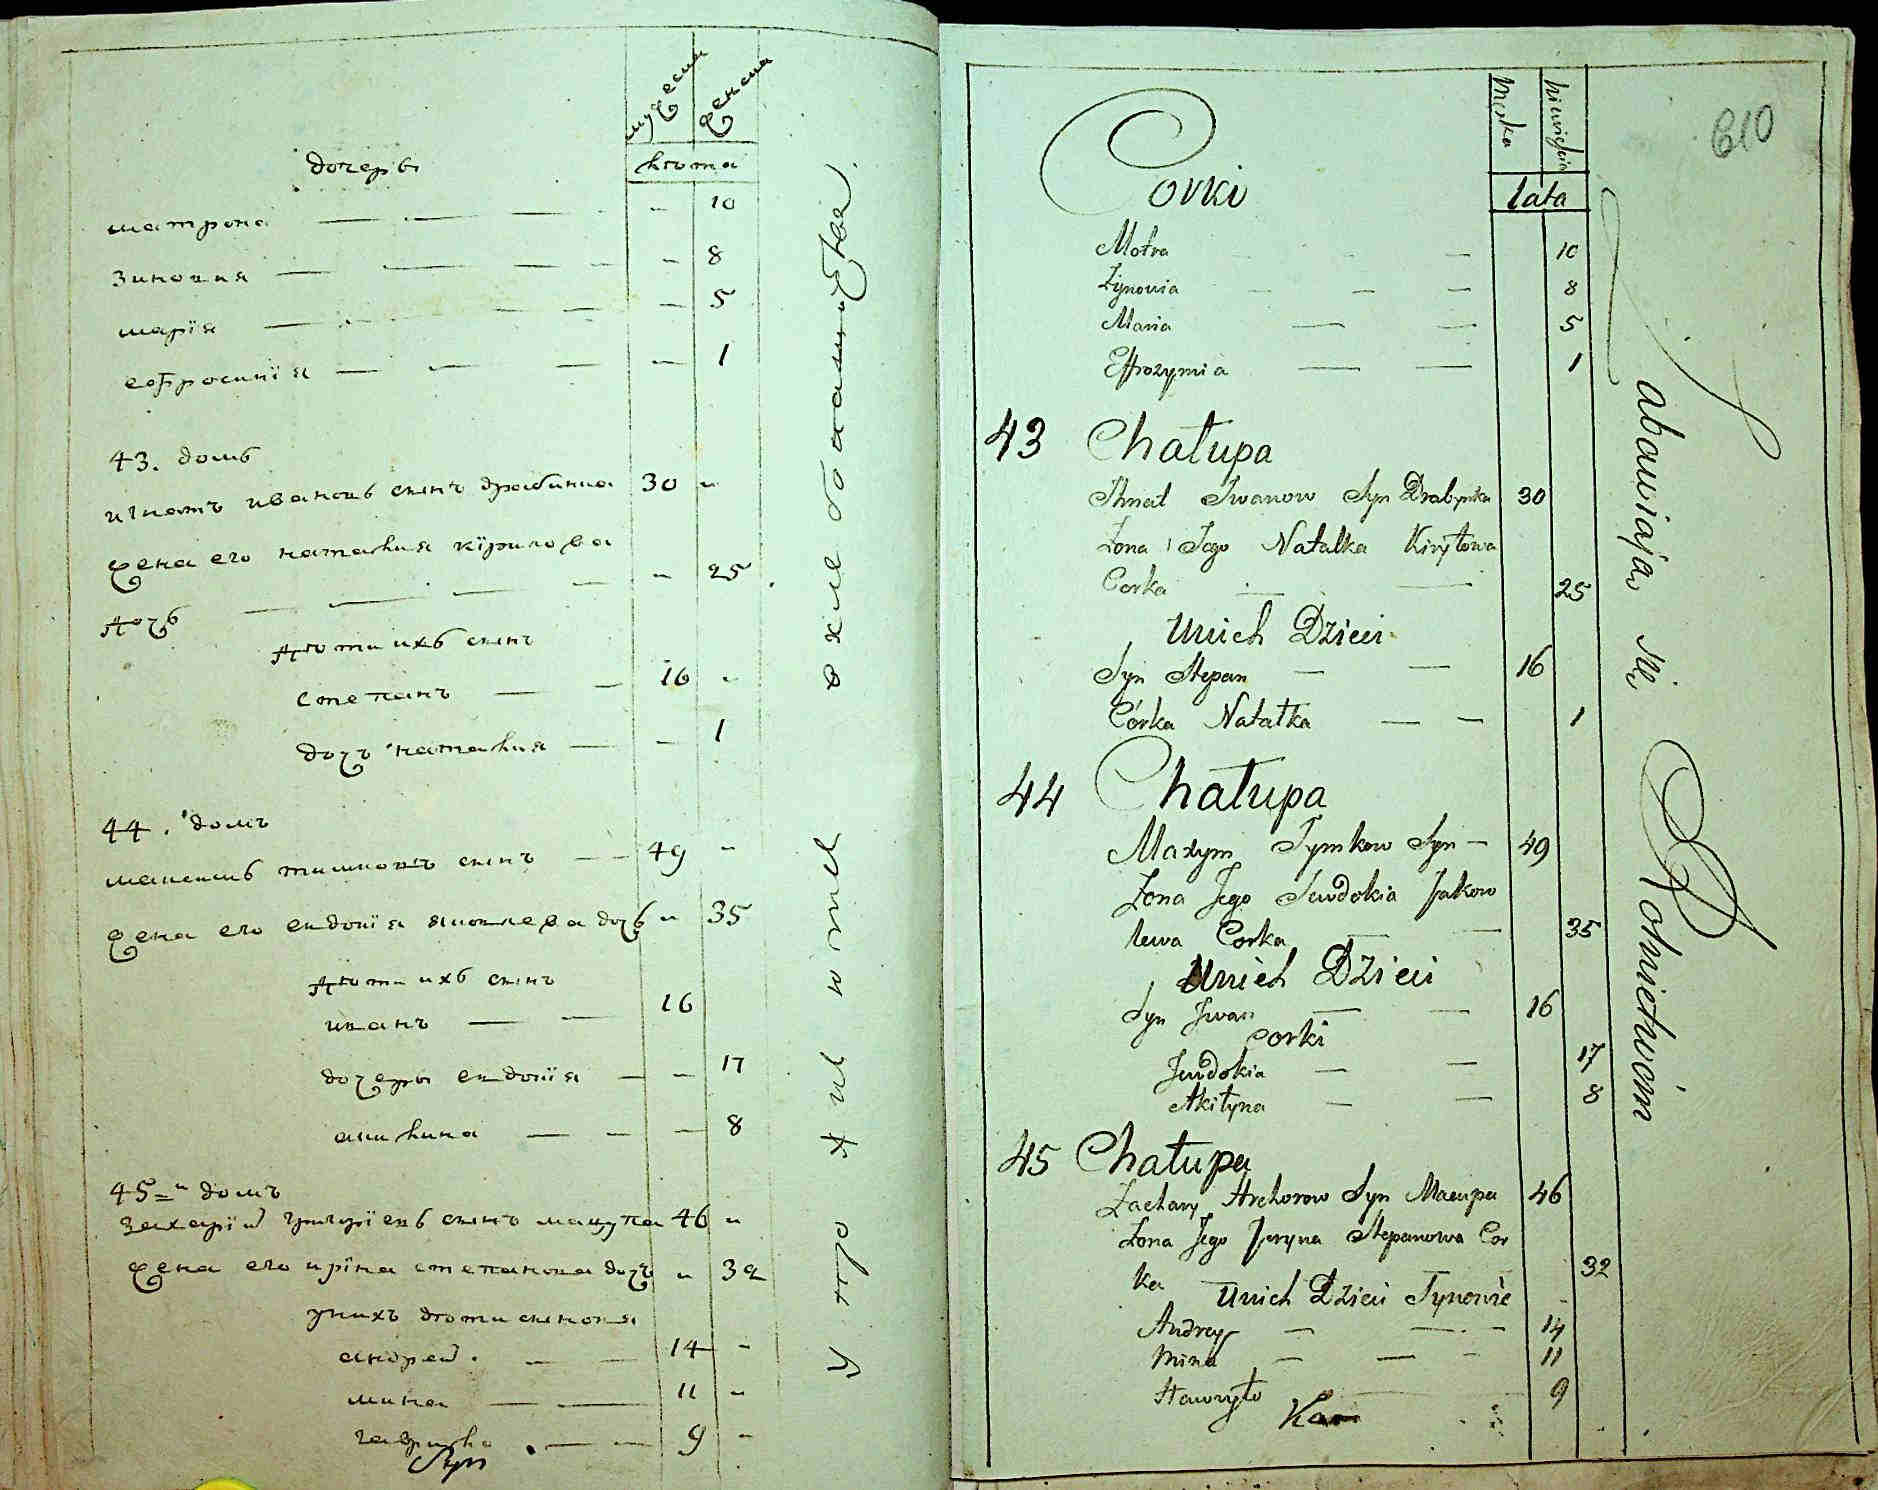 мужеска
женска
лѣта
дочеры
матрона — — — - 10
зиновия — — — - 8
марїя — — — - 5
ефросинїя — — — - 1
43. домъ
игнатъ ивановъ сынъ драбинка 30 -
жена его наталия кїрилова
дочь — — — - 25
дѣти ихъ сынъ
степанъ — — 16 -
дочъ наталия — - 1
44. домъ
максимъ тимковъ сынъ — 49 -
жена его евдокїя яковлева дочь - 35
дѣти ихъ сынъ
иванъ — — 16
дочеры евдокїя — - 17
акилина — — - 8
45 домъ
захарїй григорїевъ сынъ мацупа 46 -
жена его ирїна степанова дочъ - 32
у нихъ дѣти сыновя
андрей — — 14 -
мина — — 11 -
гаврило — — 9 -
Syn
упражняются в хлебопашестве
610
Męska
Niewieścia
lata
Corki
Motra — 10
Zynowia — — — 8
Maria — — 5
Effrozynia — — 1
43 Chałupa
Ihnat Iwanow Syn Drabynka 30
Zona Jego Natalka Kiryłowa
Corka — — 25
Unich Dzieci
Syn Stepan — — 16
Córka Natałka — — 1
44 Chałupa
Maxym Tymkow Syn — 49
Zona Jego Jewdokia Jakow
lewa Corka — — 35
Unich Dzieci
Syn Jwan — — 16
Corki
Jewdokia — — 17
Akiłyna — — 8
45 Chałupa
Zachary Hrehorow Syn Macupa 46
Zona Jego Jeryna Stepanowa Cor
ka 32
Unich Dzieci Synowie
Andrey — — — 14
Mina — — — 11
Hawryło — 9
Zabawiają się Rolnictwóm